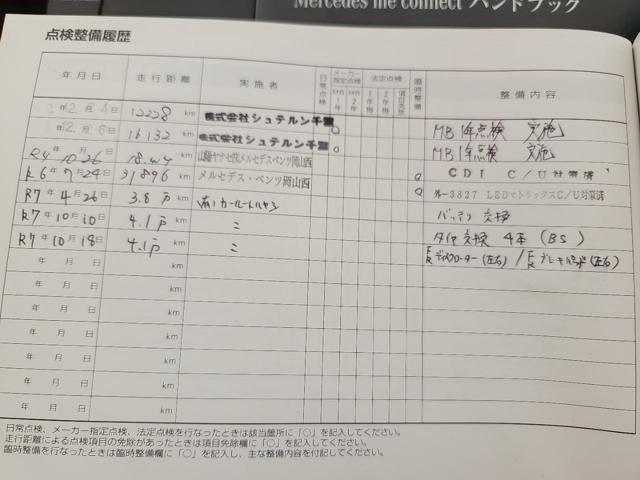 Mercedes me connect ハンドブック
点検整備履歴
年月日 走行距離 実施者 日常点検 メーカー指定点検 MB1年 MB2年 法定点検 1年毎 2年毎 項目免除 臨時整備 整備内容
年2月4日 12228 km 株式会社シュテルン千葉 ○ MB1年点検 実施
年12月6日 16132 km 株式会社シュテルン千葉 ○ MB1年点検 実施
R4年10月26日 km 山陽ヤナセ(株)メルセデスベンツ岡山西 CDI C/U対策済
R6年7月24日 31896 km メルセデス・ベンツ岡山西 ○ 外-3827 LEDマトリックスC/U対策済
R7年4月26日 3.8万 km (有)カールートハヤシ バッテリ交換
R7年10月10日 4.1万 km 〃 タイヤ交換 4本 (BS)
R7年10月18日 4.1万 km 〃 ディスクローター(左右) / ブレーキパッド(左右)
年 月 日 km
年 月 日 km
年 月 日 km
年 月 日 km
年 月 日 km
年 月 日 km
日常点検、メーカー指定点検、法定点検を行なったときは該当箇所に「○」を記入してください。
走行距離による点検項目の免除があったときは項目免除欄に「○」を記入してください。
臨時整備を行なったときは臨時整備欄に「○」を記入し、主な整備内容を付記してください。